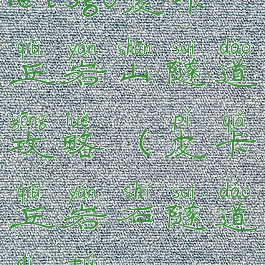 let'sgo皮卡
qiū yán shān suì dào
丘岩山隧道
gōng lüè pí qiǎ
攻略（皮卡
qiū yán shí suì dào
丘岩石隧道